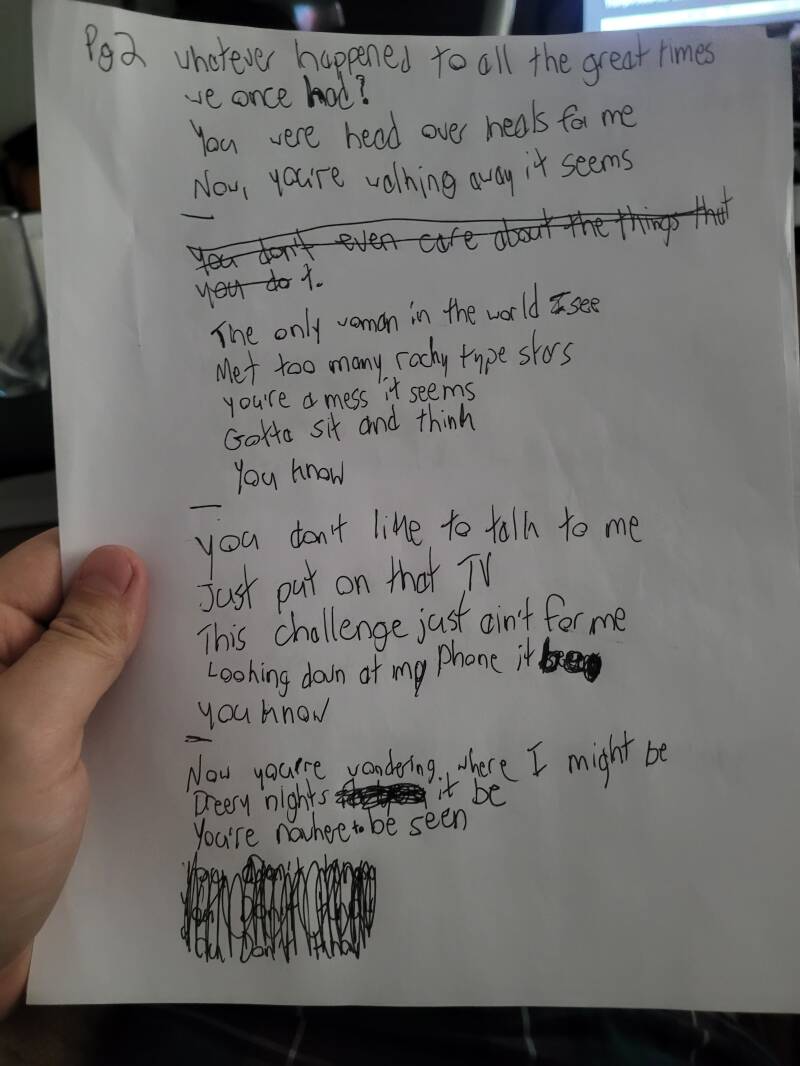 Pg2 whatever happened to all the great times
we once had?
You were head over heals for me
Now, you're walking away it seems
—
You don't even care about the things that
you do t.
The only woman in the world I see
Met too many rocky type stars
you're a mess it seems
Gotta sit and think
You know
—
you don't like to talk to me
Just put on that TV
This challenge just ain't for me
Looking down at my phone it
you know
—
Now you're wondering where I might be
Dreery nights it be
You're nowhere to be seen